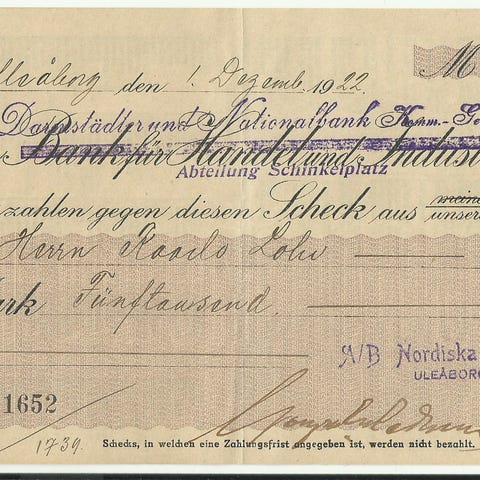 Uleåborg den 1. Dezemb. 1922. M
Darmstädter und Nationalbank Komm.-Ge
Bank für Handel und Indust
Abteilung Schinkelplatz
zahlen gegen diesen Scheck aus meine
unser
Herrn Kaarlo Lohi
ark Fünftausend.
A/B Nordiska
ULEÅBORG
1652
1739.
Schecks, in welchen eine Zahlungsfrist angegeben ist, werden nicht bezahlt.